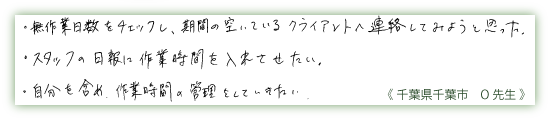 ・無作業日数をチェックし、期間の空いているクライアントへ連絡してみようと思った。
・スタッフの日報に作業時間を入れさせたい。
・自分を含め、作業時間の管理をしていきたい.
《 千葉県千葉市　O 先生 》